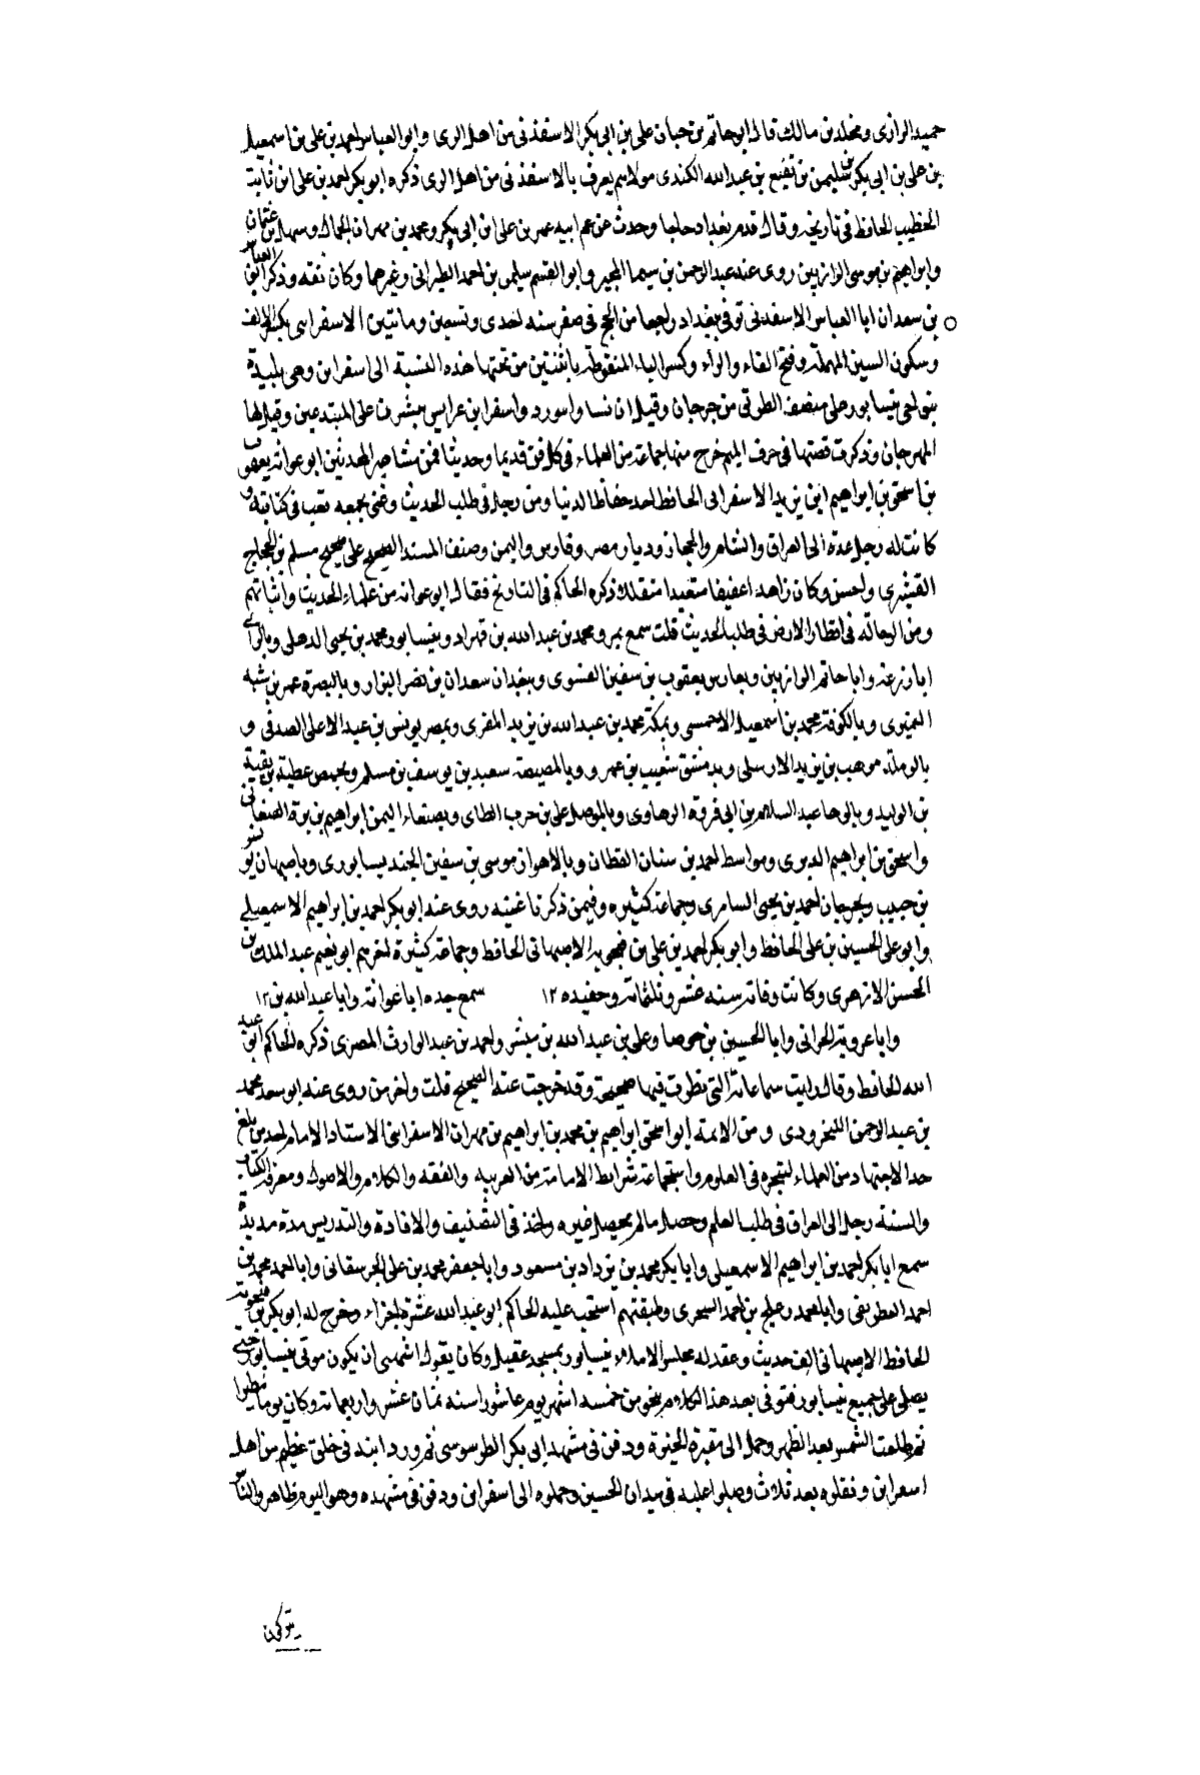 حميد الرازى ومخلد بن مالك قال ابو حاتم بن حبان على بن ابى بكر الاسفذنى من اهل الرى وابو العباس احمد بن على بن اسمعيل
بن على بن ابى بكر بن سليمن بن نفيع بن عبد الله الكندى مولاهم يعرف بالاسفذنى من اهل الرى ذكره ابو بكر احمد بن على ابن ثابة
الخطيب الحافظ فى تاريخه وقال قدم بغداد حاجا وحدث عن عم ابيه عمر بن على ابن ابى بكر ومحمد بن مهران الجمال وسهل بن عثمان
وابراهيم بن موسى الرازيين روى عنه عبد الرحمن بن سيما المجبر وابو القسم سليمن بن احمد الطبرانى وغيرهما وكان ثقه وذكر ابو العباس
بن سعدان ابا العباس الاسفذنى توفى ببغداد راجعا من الحج فى صفر سنه احدى وتسعين ومائتين الاسفراينى بكسر الالف
وسكون السين المهملة وفتح الفاء والراء وكسر الياء المنقوطة باثنتين من تحتها هذه النسبة الى اسفراين وهى بليدة
بنواحى نيسابور على منصف الطريق من جرجان وقيل ان نسا وابيورد واسفراين عرايس ينشزن على المبتدعين وقيل لها
المهرجان وذكرت قصتها فى حرف الميم خرج منها جماعة من العلماء فى كل فن قديما وحديثا فمن مشاهير المحدثين ابو عوانه يعقوب
بن اسحق بن ابراهيم ابن يزيد الاسفراينى الحافظ احد حفاظ الدنيا ومن رحل فى طلب الحديث وعنى بجمعه وتعب فى كتابته و
كانت له رحل عدة الى العراق والشام والحجاز وديار مصر وفارس واليمن وصنف المسند الصحيح على صحيح مسلم بن الحجاج
القشيرى واحسن وكان زاهدا عفيفا متعبدا متقللا ذكره الحاكم فى التاريخ فقال ابو عوانه من علماء الحديث واثباتهم
ومن الرحالة فى اقطار الارض فى طلب الحديث قلت سمع بمرو محمد بن عبد الله بن قهزاد وبنيسابور محمد بن يحيى الذهلى وبالرى
ابا زرعه وابا حاتم الرازيين وبفارس يعقوب بن سفين الفسوى وببغداد سعدان بن نصر البزار وبالبصرة عمر بن شبه
النميرى وبالكوفة محمد بن اسمعيل الاحمسى وبمكة محمد بن عبد الله بن يزيد المقرى وبمصر يونس بن عبد الاعلى الصدفى و
بالرملة موهب بن يزيد الارسلى وبدمشق شعيب بن عمرو وبالمصيصة سعيد بن يوسف بن مسلم وبحمص عطية بن بقية
بن الوليد وبالرها عبد السلام بن ابى فروة الرهاوى وبالموصل على بن حرب الطاى وبصنعاء اليمن ابراهيم بن برة الصنعانى
واسحق بن ابراهيم الدبرى وبواسط احمد بن سنان القطان وبالاهواز موسى بن سفين الجنديسابورى وباصبهان يونس
بن حبيب وبجرجان احمد بن يحيى السامرى وجماعة كثيره وفيمن ذكرنا غنيه روى عنه ابو بكر احمد بن ابراهيم الاسمعيلى
وابو على الحسين بن على الحافظ وابو بكر احمد بن على بن فنجويه الاصبهانى الحافظ وجماعة كثيرة اخرهم ابو نعيم عبد الملك بن
الحسن الازهرى وكانت وفاته سنه عشر وثلثمائة وحفيده ١٢ سمع جده ابا عوانة وابا عبد الله بن ١٢
وابا عروبة الحرانى وابا الحسين بن جوصا وعلى بن عبد الله بن مبشر واحمد بن عبد الوارث المصرى ذكره الحاكم ابو عبد
الله الحافظ وقال رايت سماعاته التى نظرت فيها صحيحة وقد خرجت عنه الصحيح قلت واخر من روى عنه ابو سعد محمد
بن عبد الرحمن الكنجرودى ومن الائمه ابو اسحق ابراهيم بن محمد بن ابراهيم بن مهران الاسفراينى الاستاد الامام احد من بلغ
حد الاجتهاد من العلماء لتبحره فى العلوم واستجماعه شرايط الامامة من العربيه والفقه والكلام والاصول ومعرفة الكتاب
والسنه رحل الى العراق فى طلب العلم وحصل ما لم يحصل غيره واخذ فى التصنيف والافادة والتدريس مدة مديدة
سمع ابا بكر احمد بن ابراهيم الاسمعيلى وابا بكر محمد بن يزداد بن مسعود وابا جعفر محمد بن على الجوسقانى وابا احمد محمد بن
احمد الغطريفى وابا محمد دعلج بن احمد السجزى وطبقتهم انتخب عليه الحاكم ابو عبد الله عشرة اجزاء وخرج له ابو بكر بن منجويه
الحافظ الاصبهانى الف حديث وعقد له مجلس الاملاء بنيسابور بمسجد عقيل وكان يقول اشتهى ان يكون موتى بنيسابور حتى
يصلى على جميع نيسابور فتوفى بعد هذا الكلام بنحو من خمسه اشهر يوم عاشورا سنه ثمان عشر واربعمائه وكان يوما مطيرا
ثم طلعت الشمس بعد الظهر وحمل الى مقبرة الحيرة ودفن فى مشهد ابى بكر الطرسوسى ثم ورد ابنه فى خلق عظيم من اهل
اسفراين ونقلوه بعد ثلاث وصلوا عليه فى ميدان الحسين وحملوه الى اسفراين ودفن فى مشهده وهو اليوم ظاهر والناس
يتبركون